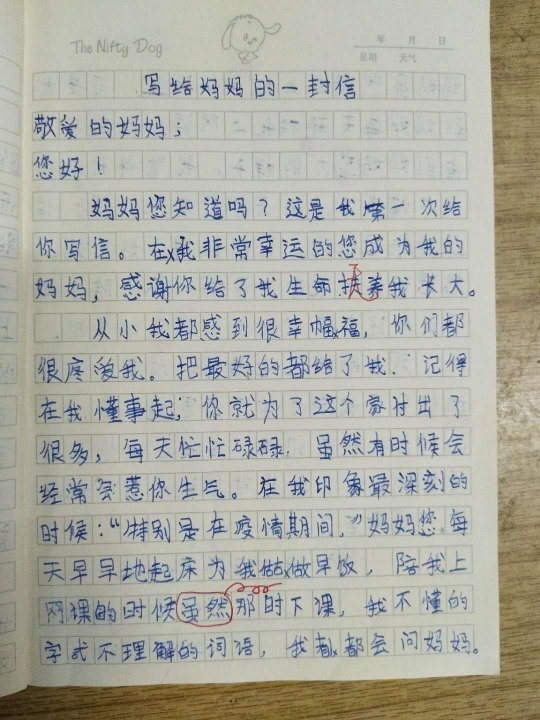 The Nifty Dog
年 月 日
星期 天气
写给妈妈的一封信
敬爱的妈妈；
您好！
妈妈您知道吗？这是我第一次给
你写信。在我非常幸运的您成为我的
妈妈，感谢你给了我生命扶养我长大。
从小我都感到很幸幅福，你们都
很疼爱我。把最好的都给了我．记得
在我懂事起，你就为了这个家付出了
很多，每天忙忙碌碌．虽然有时候会
经常会惹你生气。在我印象最深刻的
时候：“特别是在疫情期间，”妈妈您每
天早早地起床为我做早饭，陪我上
网课的时候虽然那时下课，我不懂的
字或不理解的词语，我都会问妈妈。